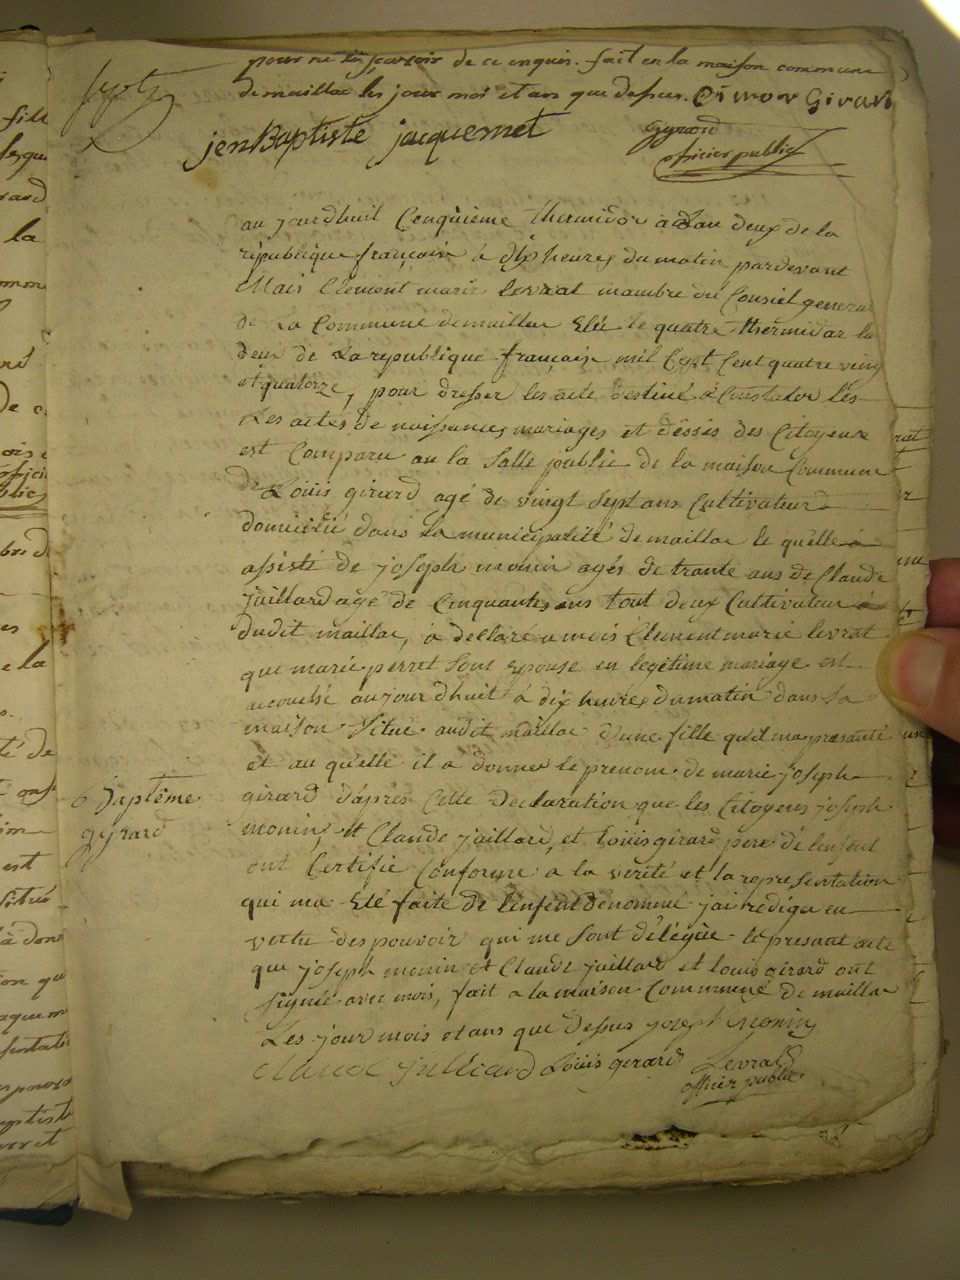 pour ne scavoir de ce enquis. fait en la maison commune
de maillac les jour moi et an que dessus. Simon Girard
jenBaptiste jacquemet
Gyrard
officier public
au jourdhuil Cenquieme thermidor a lan deux de la
république françoise à dix heures du matin pardevant
Mais Clement marie levrat mambre du Consiel general
de La Commune demaillac Elu le quatre thermidar la
deux de La republique françoise mil Cept Cent quatre ving
et quatorze, pour dresser les acte destiné a Constater les
Les actes de naissances, mariages et désses des Citoyens
est Comparu au la Salle public de la maison Commune
de Louis girard agé de vingt Sept ans Cultivateur
domicilié dans la municipalité demaillac le quelle
assisté de joseph monin agés de trante ans de Claude
juillard agé de Cinquantes ans tout deux Cultivateur
dudit maillac, à declaré a mois Clement marie levrat
que marie perret Sont Epouse en legitime mariage est
acouché aujourdhuit à dix heures dumatin dans Sa
maison Situé audit maillac d'une fille quil ma presanté
et au quelle il a donner le prenom de marie joseph
6 Baptême
girard d'apres Cette declaration que les Citoyens joseph
gyrard
monin, et Claude juillard, et Louis girard pere de l'enfent
ont Certifié Conforme a la verité et la representation
qui ma Eté faite de l'enfent denommé jai redigu en
vertu des pouvoir qui me Sont délégue le presant acte
que joseph monin et Claude juillard et louis girard ont
signée avec mois, fait a la maison Commune de maillac
Les jour mois et ans que dessus joseph monin
Claude juilliard Louis gerard Levrat
officier public